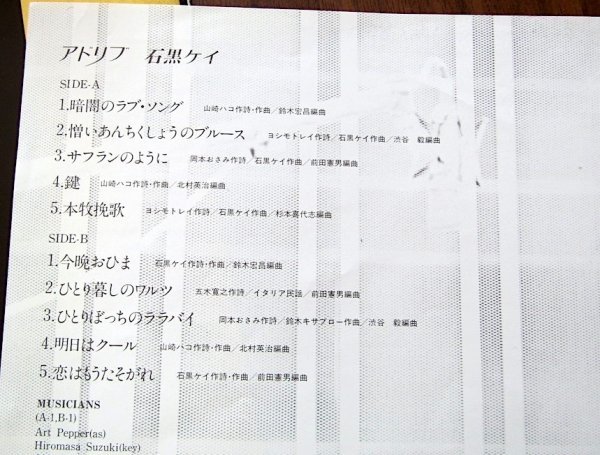 アドリブ 石黒ケイ
SIDE-A
1.暗闇のラブ・ソング 山崎ハコ作詩・作曲/鈴木宏昌編曲
2.憎いあんちくしょうのブルース ヨシモトレイ作詩/石黒ケイ作曲/渋谷 毅編曲
3.サフランのように 岡本おさみ作詩/石黒ケイ作曲/前田憲男編曲
4.鍵 山崎ハコ作詩・作曲/北村英治編曲
5.本牧挽歌 ヨシモトレイ作詩/石黒ケイ作曲/杉本喜代志編曲
SIDE-B
1.今晩おひま 石黒ケイ作詩・作曲/鈴木宏昌編曲
2.ひとり暮しのワルツ 五木寛之作詩/イタリア民謡/前田憲男編曲
3.ひとりぼっちのララバイ 岡本おさみ作詩/鈴木キサブロー作曲/渋谷 毅編曲
4.明日はクール 山崎ハコ作詩・作曲/北村英治編曲
5.恋はもうたそがれ 石黒ケイ作詩・作曲/前田憲男編曲
MUSICIANS
(A-1,B-1)
Art Pepper(as)
Hiromasa Suzuki(key)